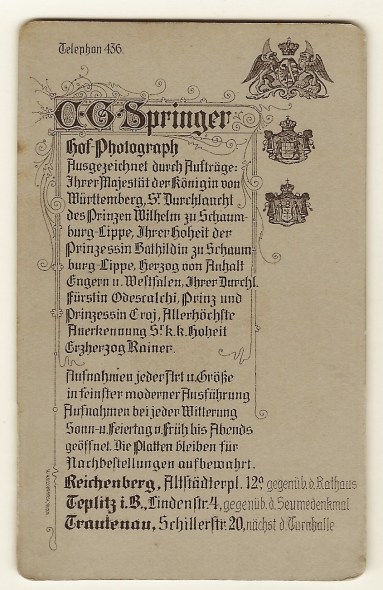 Telephon 436.
C. G. Springer
Hof-Photograph
Ausgezeichnet durch Aufträge:
Ihrer Majestät der Königin von
Württemberg, Sr. Durchlaucht
des Prinzen Wilhelm zu Schaum-
burg-Lippe, Ihrer Hoheit der
Prinzessin Bathildin zu Schaum-
burg-Lippe, Herzog von Anhalt
Engern u. Westfalen, Ihrer Durchl.
Fürstin Odescalchi, Prinz und
Prinzessin Croj, Allerhöchste
Anerkennung Sr. k. k. Hoheit
Erzherzog Rainer.
Aufnahmen jeder Art u. Größe
in feinster moderner Ausführung
Aufnahmen bei jeder Witterung
Sonn- u. Feiertag v. Früh bis Abends
geöffnet. Die Platten bleiben für
Nachbestellungen aufbewahrt.
Reichenberg, Altstädterpl. 12a gegenüb. d. Rathaus
Teplitz i. B., Lindenstr. 4, gegenüb. d. Seumedenkmal
Trautenau, Schillerstr. 20, nächst d. Turnhalle